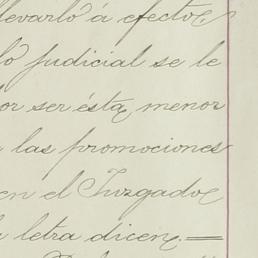 llevarlo á efecto,
lo judicial se le
por ser ésta, menor
las promociones
en el Juzgado
letra dicen.=